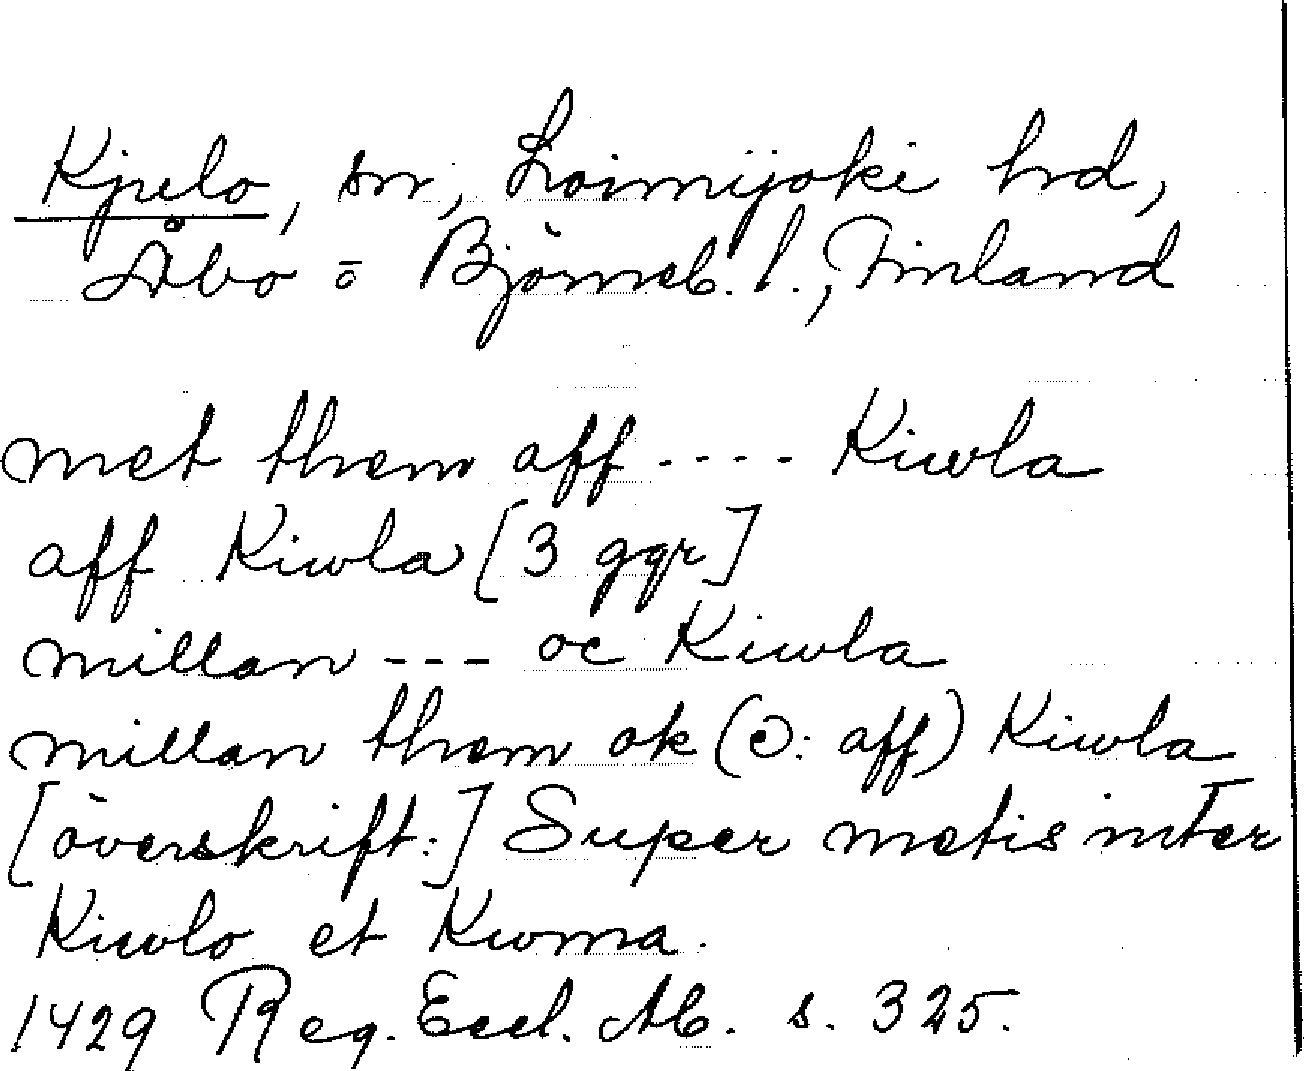 Kjulo, sn, Loimijoki hrd,
Åbo o Björneb. l., Finland
met them aff ---- Kiwla
aff Kiwla [3 ggr]
millan --- oc Kiwla
millan them ok (ɔ: aff) Kiwla
[överskrift:] Super metis inter
Kiwlo et Kwma.
1429 Reg. Eccl. Ab. s. 325.